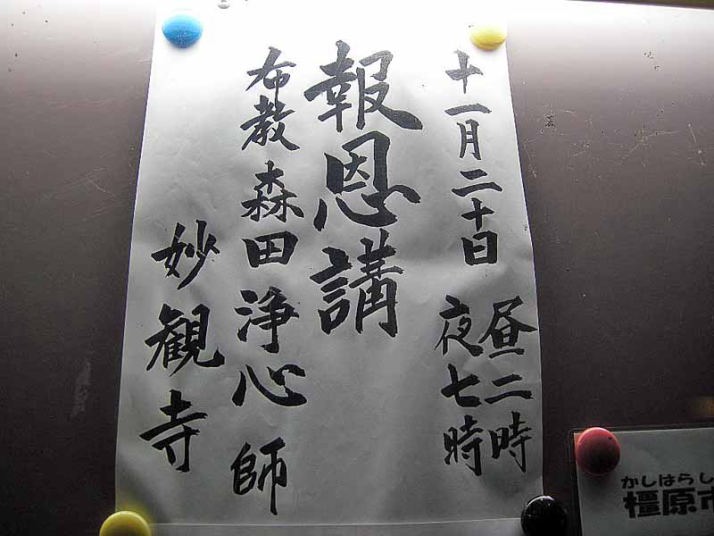 十一月二十日 昼二時
夜七時
報恩講
布教 森田浄心 師
妙観寺
かしはらし
橿原市